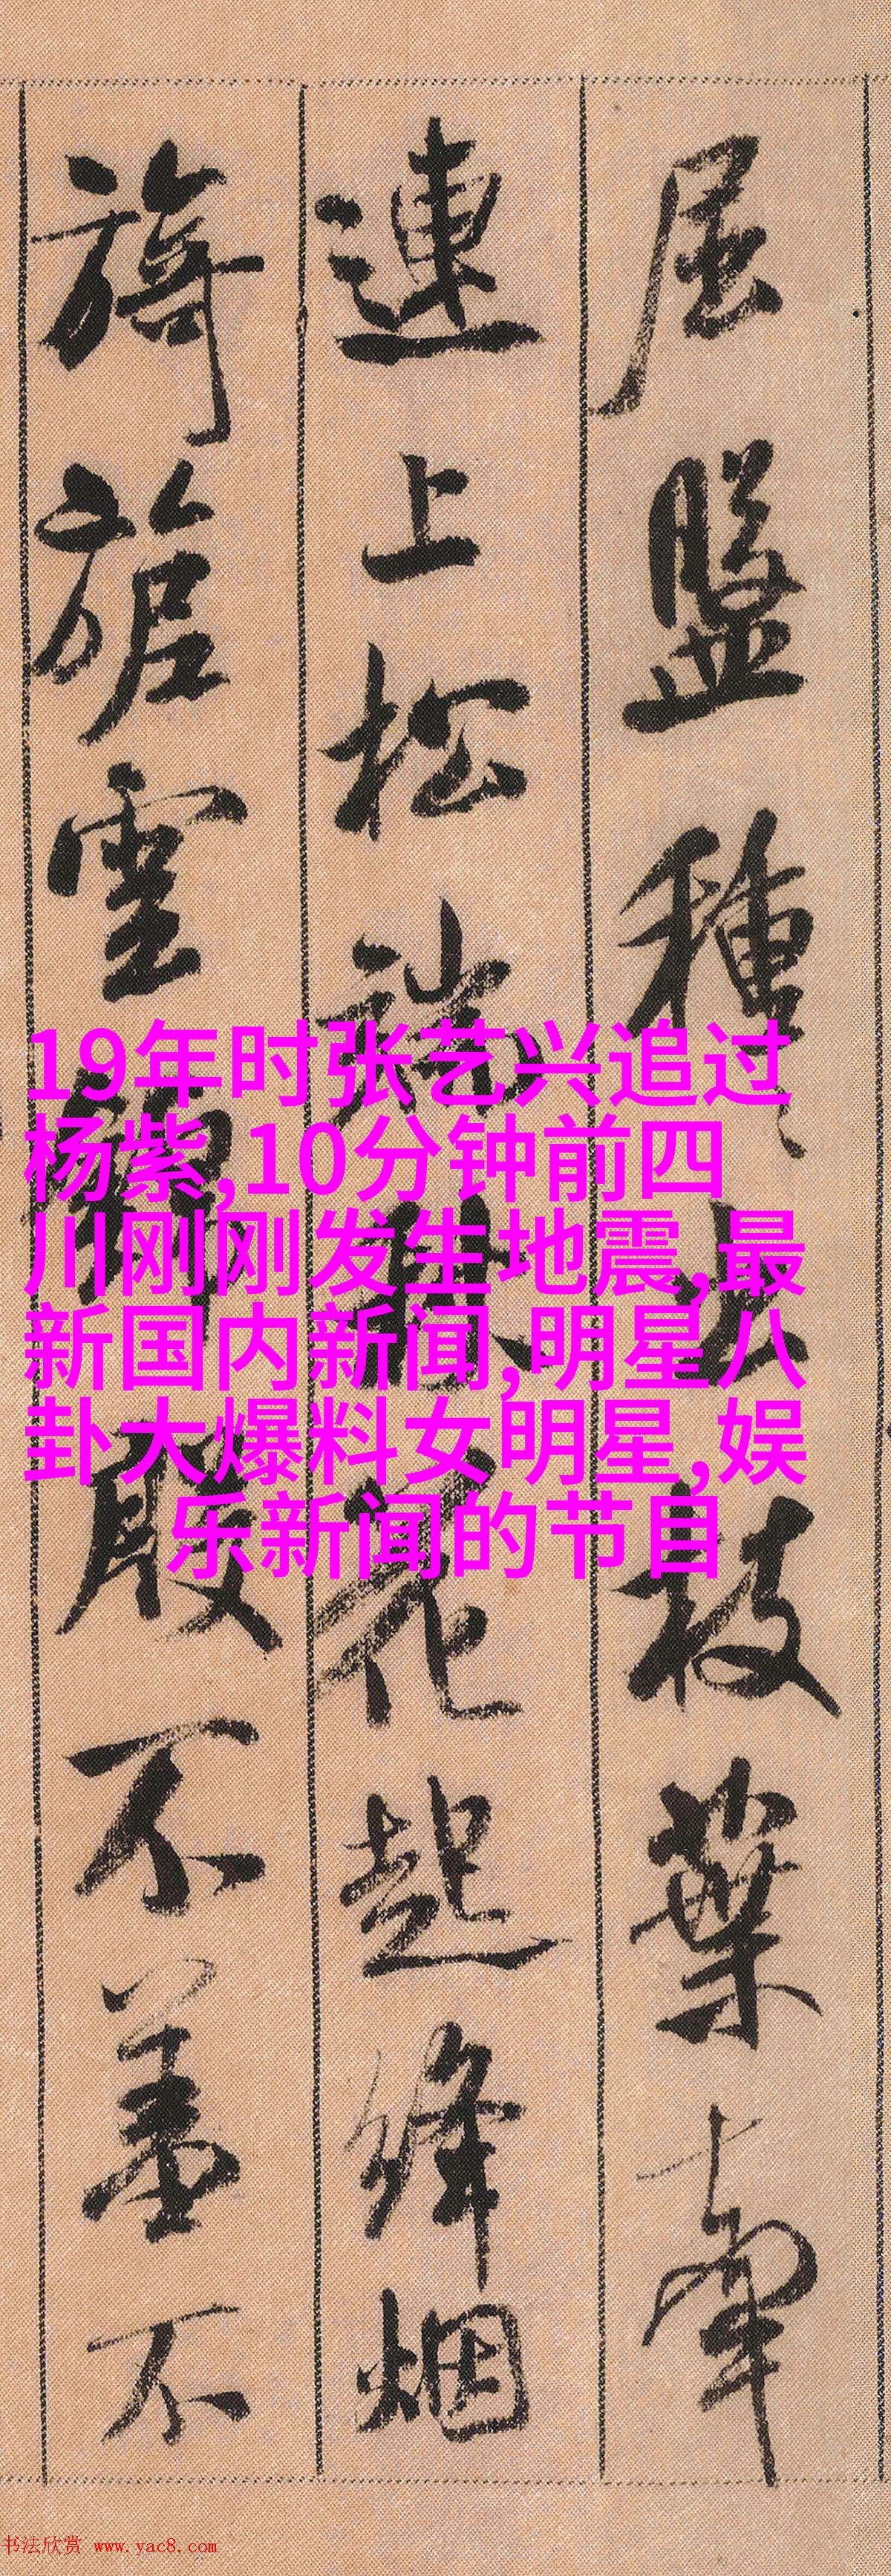 屈盤種種古枝葉牽
連上松端秋花起絳烟
旖旎雲錦殷不羞不
19年时张艺兴追过
杨紫,10分钟前四
川刚刚发生地震,最
新国内新闻,明星八
卦大爆料女明星,娱
乐新闻的节目
书法欣赏 www.yac8.com